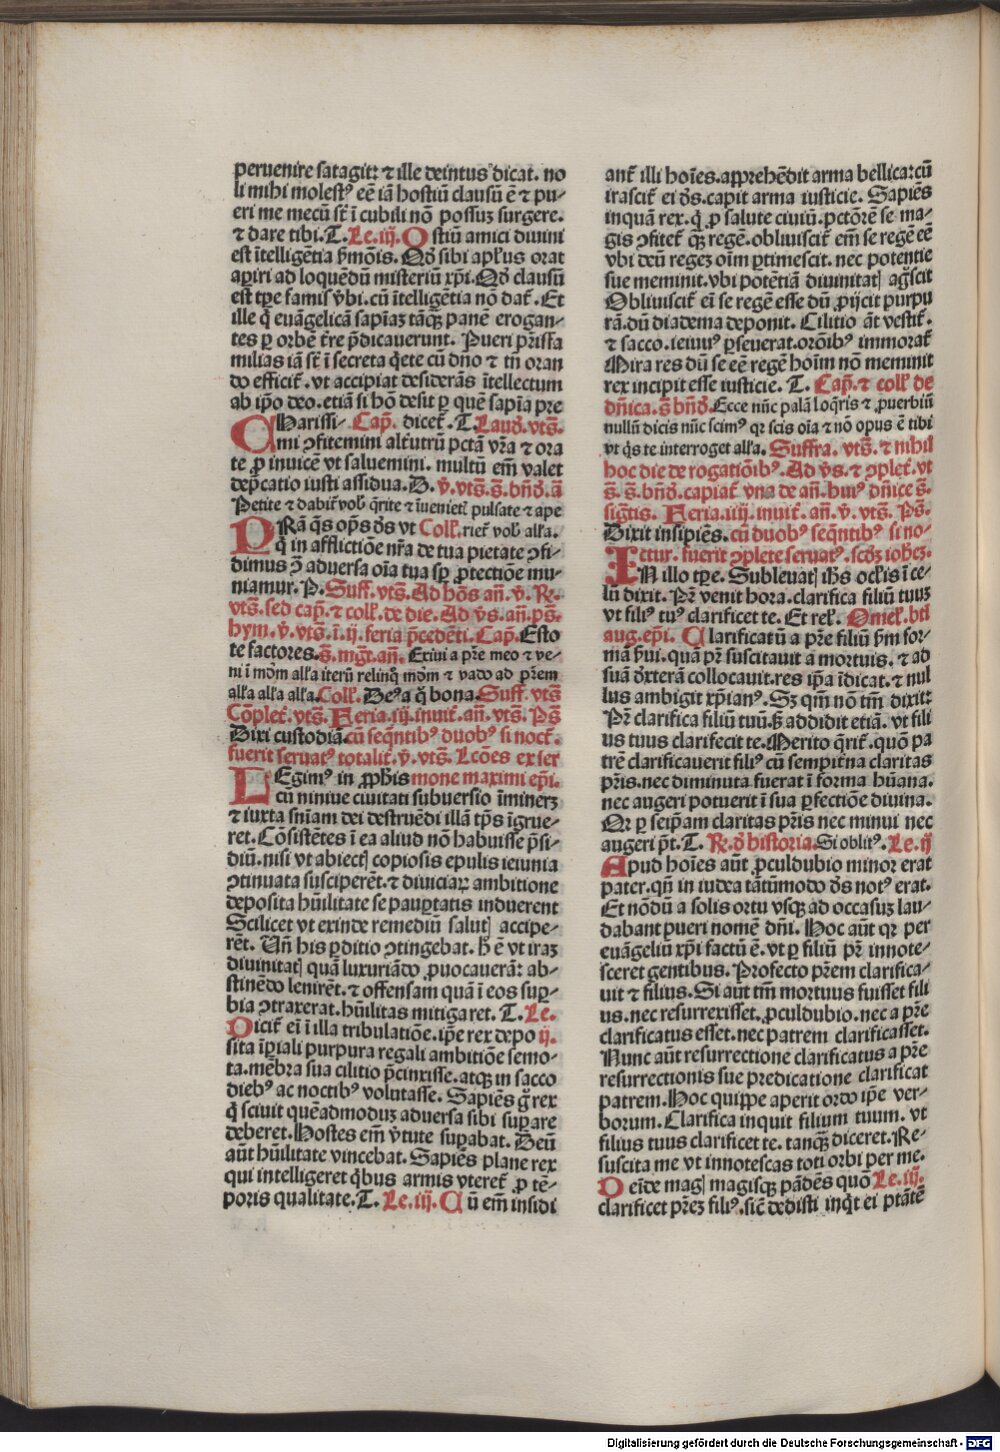 peruenire satagit: ⁊ ille deintus dicat. no
li mihi molestꝰ eē iā hostiū clausū ē ⁊ pu-
eri me mecū st̄ ī cubili nō possuꝫ surgere.
⁊ dare tibi. T. Le. iij. Ostiū amici diuini
est ītelligētia ẜmōis. Qḋ sibi apl̓us orat
aꝑiri ad loquēdū misteriū xp̄i. Qḋ clausū
est tꝑe famis v̓bi. cū ītelligētia nō dat̄. Et
ille q̇ euāgelicā sapīaꝫ tāqꝫ panē erogan-
tes ꝑ orbē t̓re p̄dicauerunt. Pueri pr̄isfa
milias iā st̄ ī secreta q̇ete cū dn̄o ⁊ tn̄ oran
do efficit̄. vt accipiat desiderās ītellectum
ab ip̄o deo. etiā si hō desit ꝑ quē sapīa pre
CHarissi- Cap̄. dicet̄. T. Laud̓. vts̄.
mi ꝯfitemini alt̓utrū pctā vr̄a ⁊ ora
te ꝓ inuicē vt saluemini. multū em̄ valet
dep̄catio iusti assidua. D. v̓. vts̄. s̄. bn̄d̓. ā
Petite ⁊ dabit̄ vob̓ q̄rite ⁊ īuenietꝭ pulsate ⁊ ape
PRā q̄s op̄s d̓s vt Coll̓. riet̄ vob̓ alľa.
q̇ in afflictiōe nr̄a de tua pietate ꝯfi-
dimus ꝯ̄ aduersa oīa tua sꝑ ꝓtectiōe mu-
niamur. P. Suff. vts̄. Ad hōs an̄. v̓. R̷.
vts̄. sed cap̄. ⁊ coll̓. de die. Ad v̓s. an̄. ps̄.
hym. v̓. vts̄. ī. ij. feria p̄cedēti. Cap̄. Esto
te factores. s̄. mgt̄. an̄. Exiui a pr̄e meo ⁊ ve-
ni ī mōm alľa iterū relinq̊ mōm ⁊ vado ad pr̄em
alľa alľa alľa. Coll̓. Deꝰ a q̊ bona. Suff. vts̄
Cōplet̄. vts̄. Feria. iij. inuit̄. an̄. vts̄. Ps̄
Dixi custodiā. cū seq̄ntibꝰ duobꝰ si noct̄.
fuerit seruatꝰ totalit̓. v̓. vts̄. Lcōes ex ser
LEgimꝰ in ꝓph̓is mone maximi ep̄i.
cū niniue ciuitati subuersio īminerꝫ
⁊ iuxta sn̄iam dei destruēdi illā tp̄s īgrue-
ret. Cōsistētes ī ea aliud nō habuisse p̄si-
diū. nisi vt abiectꝭ copiosis epulis ieiunia
ꝯtinuata susciperēt. ⁊ diuiciaꝝ ambitione
deposita hūilitate se pauꝑtatis induerent
Scilicet vt exinde remediū salutꝭ accipe-
rēt. Un̄ his ꝑditio ꝯtingebat. h̓ ē vt iraꝫ
diuinitatꝭ quā luxuriādo ꝓuocauerāt abs-
tinēdo lenirēt. ⁊ offensam quā ī eos suꝑ-
bia ꝯtraxerat. hūilitas mitigaret. T. Le.
Dicit̄ ei̅ ī illa tribulatiōe. ip̄e rex depo ij.
sita īꝑiali purpura regali ambitiōe semo-
ta. mēbra sua cilitio p̄cinxisse. atqꝫ in sacco
diebꝰ ac noctibꝰ volutasse. Sapiēs g̊ rex
q̇ sciuit quēadmoduꝫ aduersa sibi suꝑare
deberet. Hostes em̄ v̓tute suꝑabat. Deū
aūt hūilitate vincebat. Sapiēs plane rex
qui intelligeret q̇bus armis vteret̄ ꝓ tē-
poris qualitate. T. Le. iij. Cū em̄ insidi
ant̄ illi hoīes. apprehēdit arma bellica: cū
irascit̄ ei d̓s. capit arma iusticie. Sapiēs
inquā rex. q̇ ꝓ salute ciuiū. pctōrē se ma-
gis ꝯfitet̄ qꝫ regē. obliuiscit̄ em̄ se regē eē
vbi deū regeꝫ oīm ꝑtimescit. nec potentie
sue meminit. vbi potētiā diuinitatꝭ ag̊scit
Obliuiscit̄ ei̅ se regē esse dū ꝓijcit purpu
rā. dū diadema deponit. Cilitio āt vestit̄.
⁊ sacco. ieiuiꝰ ꝑseuerat. orōibꝰ immorat̄
Mira res dū se eē regē hoīm nō meminit
rex incipit esse iusticie. T. Cap̄. ⁊ coll̓ de
dn̄ica. s̄. bn̄d̓. Ecce nūc palā loq̄ris ⁊ ꝓuerbiū
nullū dicis nūc scimꝰ qꝛ scis oīa ⁊ nō opus ē tibi
vt q̇s te interroget alľa. Suffra. vts̄. ⁊ nihil
hoc die de rogatiōibꝰ. Ad v̓s. ⁊ ꝯplet̄. vt
s̄. s̄. bn̄d̓. capiat̄ vna de an̄. huiꝰ dn̄ice s̄.
sig̅tis. Feria. iiij. inuit̄. an̄. v̓. vts̄. Ps̄.
Dixit insipiēs. cū duobꝰ seq̄ntibꝰ si no-
ctur. fuerit ꝯplete seruatꝰ. scd̓ꝫ ioh̓eꝫ.
IN illo tꝑe. Subleuatꝭ ih̓s ocl̓is ī ce-
lū dixit. Pr̄ venit hora. clarifica filiū tuuꝫ
vt filiꝰ tuꝰ clarificet te. Et rel̓. Omel̓. bt̓i
aug. ep̄i. Clarificatū a pr̄e filiū ẜm for-
mā ẜui. quā pr̄ suscitauit a mortuis. ⁊ ad
suā dexterā collocauit. res ip̄a īdicat. ⁊ nul
lus ambigit xp̄ianꝰ. Sꝫ qm̄ nō tm̄ dixit:
Pr̄ clarifica filiū tuū. ẜ addidit etiā. vt fili
us tuus clarifecit te. Merito q̄rit̄. quō pa
trē clarificauerit filiꝰ cū sempit̓na claritas
pr̄is. nec diminuta fuerat ī forma hūana.
nec augeri potuerit ī sua ꝑfectiōe diuina.
Or ꝑ seip̄am claritas pr̄is nec minui nec
augeri p̄t. T. R̷. d̓ historia. Si oblitꝰ. Le. ij
Apud hoīes aūt ꝓculdubio minor erat
pater. qn̄ in iudea tātūmodo d̓s notꝰ erat.
Et nōdū a solis ortu vsqꝫ ad occasuꝫ lau-
dabant pueri nomē dn̄i. Hoc aūt qꝛ per
euāgeliū xp̄i factū ē. vt ꝑ filiū pr̄ innote-
sceret gentibus. Profecto pr̄em clarifica-
uit ⁊ filius. Si aūt tm̄ mortuus fuisset fili
us. nec resurrexisset. ꝓculdubio. nec a pr̄e
clarificatus esset. nec patrem clarificasset.
Nunc aūt resurrectione clarificatus a pr̄e
resurrectionis sue predicatione clarificat
patrem. Hoc quippe aperit ordo ip̄e ver-
borum. Clarifica inquit filium tuum. vt
filius tuus clarificet te. tanqꝫ diceret. Re-
suscita me vt innotescas toti orbi per me.
Deīde magꝭ magisqꝫ pādēs quō Le. iij.
clarificet pr̄eꝫ filiꝰ. sic̄ dedisti inq̇t ei ptātē
Digitalisierung gefördert durch die Deutsche Forschungsgemeinschaft - DFG